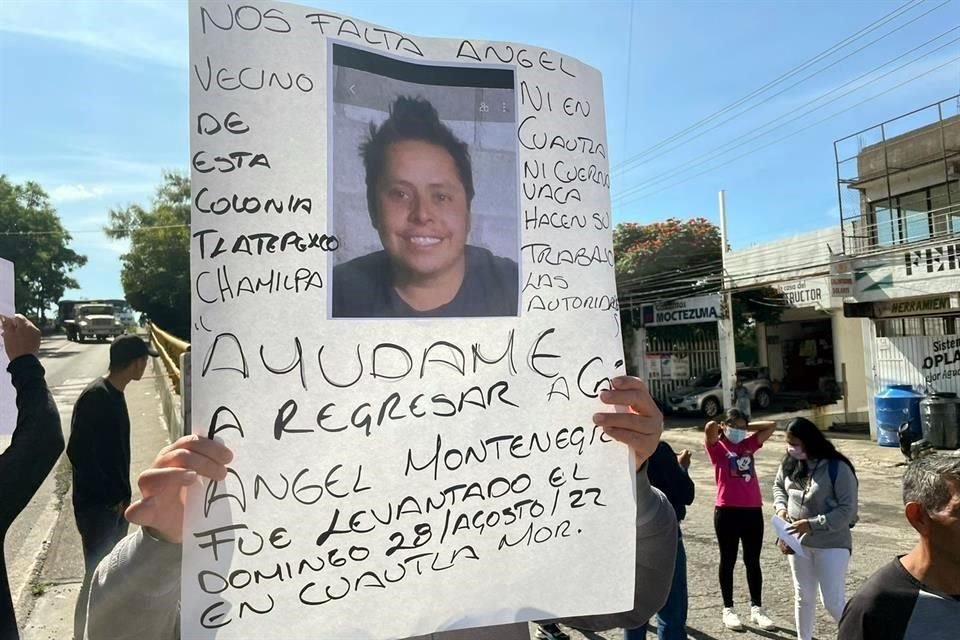 NOS FALTA ANGEL
VECINO
DE
ESTA
COLONIA
TLATEPEXCO
CHAMILPA
NI EN
CUAUTLA
NI CUERNA
VACA
HACEN SU
TRABAJO
LAS
AUTORIDADES
"AYUDAME
A REGRESAR A CASA"
ANGEL MONTENEGRO
FUE LEVANTADO EL
DOMINGO 28/AGOSTO/22
EN CUAUTLA MOR.
MOCTEZUMA
la casa del
CONSTRUCTOR
FERR
HERRAMIENT
Sistem
OPLA
Agua